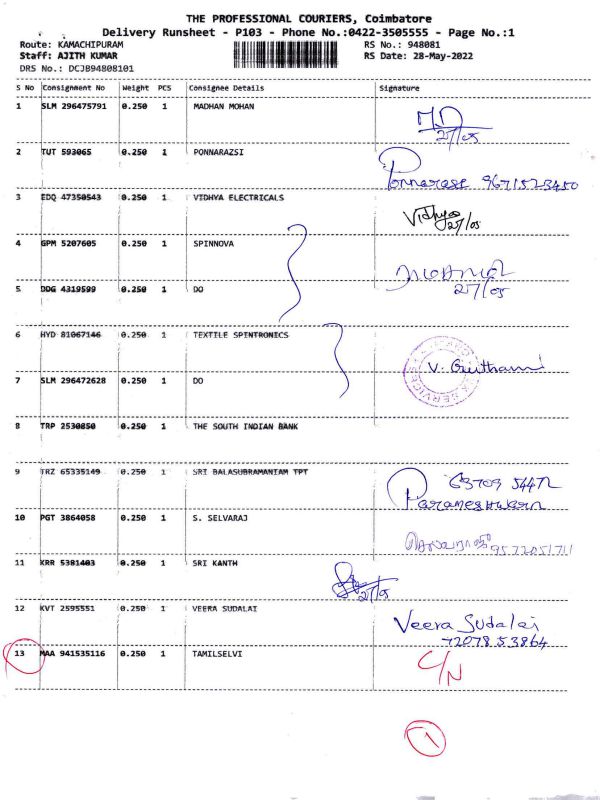 THE PROFESSIONAL COURIERS, Coimbatore
Delivery Runsheet - P103 - Phone No.:0422-3505555 - Page No.:1
Route: KAMACHIPURAM RS No.: 948081
Staff: AJITH KUMAR RS Date: 28-May-2022
DRS No.: DCJB94808101
S No Consignment No Weight PCS Consignee Details Signature
1 SLM 296475791 0.250 1 MADHAN MOHAN
M.D
27/05
2 TUT 593065 0.250 1 PONNARAZSI
Ponnarase 9671523450
3 EDQ 47350543 0.250 1 VIDHYA ELECTRICALS
Vidhya
27/05
4 GPM 5207605 0.250 1 SPINNOVA
5 DDG 4319599 0.250 1 DO
27/05
6 HYD 81067146 0.250 1 TEXTILE SPINTRONICS
V.
7 SLM 296472628 0.250 1 DO
8 TRP 2530850 0.250 1 THE SOUTH INDIAN BANK
9 TRZ 65335149 0.250 1 SRI BALASUBRAMANIAM TPT
63709 54472
Parameshwarn
10 PGT 3864058 0.250 1 S. SELVARAJ
11 KRR 5381403 0.250 1 SRI KANTH
27/05
12 KVT 2595551 0.250 1 VEERA SUDALAI
Veera Sudalai
72078 53864
13 MAA 941535116 0.250 1 TAMILSELVI
C/N
1